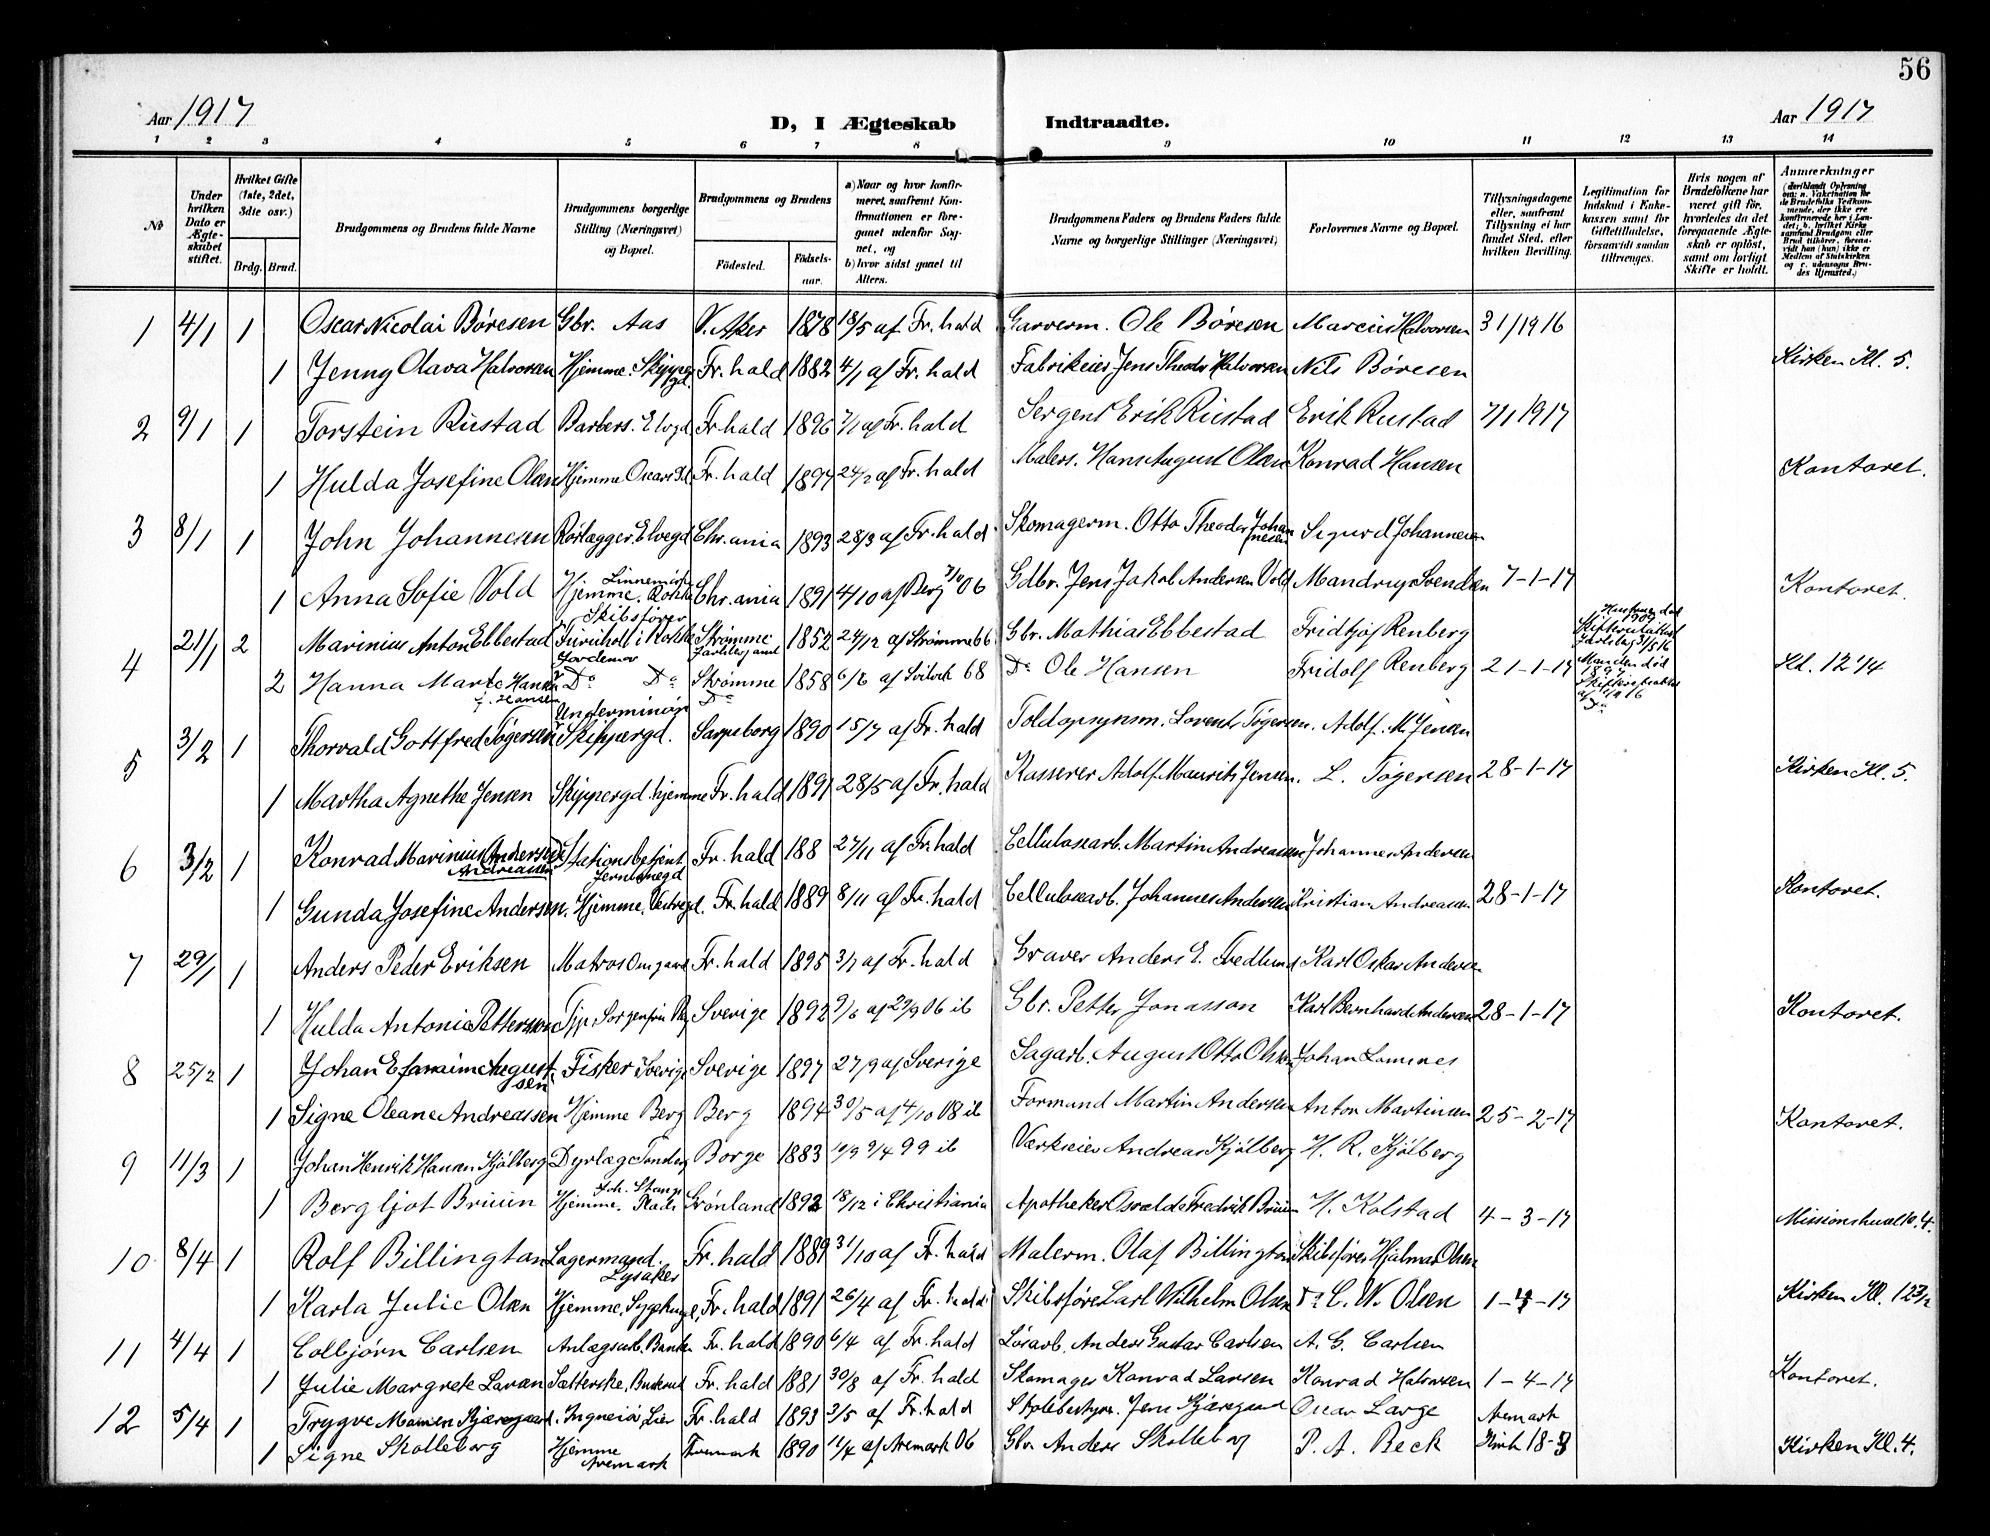 56
Aar 1917
D, I Ægteskab Indtraadte.
Aar 1917
1 2 3 4 5 6 7 8 9 10 11 12 13 14
№
Under hvilken Dato er Ægteskabet stiftet.
Hvilket Gifte (1ste, 2det, 3die osv.)
Brdg. Brud.
Brudgommens og Brudens fulde Navne
Brudgommens borgerlige Stilling (Næringsvei) og Bopæl.
Brudgommens og Brudens
Födested. Födsels-aar.
a) Naar og hvor konfirmeret, saafremt Konfirmationen er foregaaet udenfor Sognet, og
b) hvor sidst gaaet til Alters.
Brudgommens Faders og Brudens Faders fulde Navne og borgerlige Stillinger (Næringsvei)
Forlovernes Navne og Bopæl.
Tillysningsdagene eller, saafremt Tillysning ei har fundet Sted, efter hvilken Bevilling.
Legitimation for Indskud i Enkekassen samt for Giftetilladelse, forsaavidt saadan tiltrænges.
Hvis nogen af Brudefolkene har været gift för, hvorledes da det foregaaende Ægteskab er oplöst, samt om lovligt Skifte er holdt.
Anmerkninger
1 4/1 1 Oscar Nicolai Børesen Gbr. Aas V. Aker 1878 18/5 af Fr.hald Garverm. Ole Børesen Marcius Halvorsen 31/1916
1 Jenny Olava Halvorsen Hjemme. Skippergd. Fr.hald 1882 4/1 af Fr.hald Fabrikeier Jens Theodor Halvorsen Nils Børesen Kirken Kl. 5.
2 9/1 1 Torstein Rustad Barbers. Elvegd Fr.hald 1896 7/1 af Fr.hald Sergent Erik Rustad Erik Rustad 7/1 1917
1 Hulda Josefine Olsen Hjemme Oscarsgd. Fr.hald 1897 24/2 af Fr.hald Malers. Hans August Olsen Konrad Hansen Kontoret.
3 8/1 1 John Johannesen Rørlægger. Elvegd Chr.ania 1893 28/3 af Fr.hald Skomagerm. Otto Theodor Johannesen Sigurd Johannesen
1 Anna Sofie Vold Hjemme. Chr.ania 1891 4/10 af Berg 7/10 06 Gdbr. Jens Jakob Andersen Vold Mandrup Svendsen 7-1-17 Kontoret.
4 21/1 2 Marinius Anton Ebbestad Skibsfører Furuholt i Rokke Strømme Jarlsberg amt 1852 24/12 af Strømme 66 Gbr. Mathias Ebbestad Fridtjof Renberg Hustruen død 1909
2 Hanna Marie Hansen f. Hansen Jordemor Do Do Strømme Do 1858 6/6 af Svelvik 68 Do Ole Hansen Fridolf Renberg 21-1-17 Manden død Kl. 12 1/4
5 3/2 1 Thorvald Gottfred Tøgersen Skippergd. Sarpsborg 1890 15/7 af Fr.hald Toldopsynsm. Lorents Tøgersen. Adolf. M. Jensen
1 Martha Agnethe Jensen Skippergd. hjemme Fr.hald 1891 28/5 af Fr.hald Kasserer Adolf Maurits Jensen. L. Tøgersen 28-1-17 Kirken Kl. 5.
6 3/2 1 Konrad Marinius Andersen Andreassen Stationsbetjent Jernbanegd Fr.hald 188 27/11 af Fr.hald Cellulosearb. Martin Andreassen Johannes Andersen
1 Gunda Josefine Andersen. Hjemme. Vestregd. Fr.hald 1889 8/11 af Fr.hald Cellulosearb. Johannes Andersen Kristian Andreassen 28-1-17 Kontoret.
7 29/1 1 Anders Peder Eriksen Matros Omgaard Fr.hald 1895 3/7 af Fr.hald Graver Anders E. Fredlund Karl Oskar Andersen
1 Hulda Antonia Petterson Tjp, Sorgenfri Sverige 1892 9/6 af 29/9 06 ib Gbr. Petter Jonasson Karl Bernhard Andersen 28-1-17 Kontoret.
8 25/2 1 Johan Efraim Augustsen Fisker Sverige Sverige 1897 27/9 af Sverige Sagarb. August Otto Olsen Johan Lammes
1 Signe Oleane Andreassen Hjemme Berg Berg 1894 30/5 af 4/10 08 ib Formand Martin Andersen Anton Martinsen 25-2-17 Kontoret.
9 11/3 1 Johan Henrik Hansen Kjølberg Dyrlæge Tønsberg Borge 1883 10/9 9/4 99 ib Værkseier Andreas Kjølberg H. R. Kjølberg
1 Bergljot Bruun Hjemme. Joh. Stangs Plads Grønland 1892 18/12 i Christiania Apotheker Osvald Fredrik Bruun H. Kolstad 4-3-17 Missionshuset kl. 4.
10 8/4 1 Rolf Billington Lagermand. Lysaker Fr.hald 1889 31/10 af Fr.hald Malerm. Olaf Billington Skibsfører Hjalmar Olsen
1 Karla Julie Olsen Hjemme, Fr.hald 1891 26/4 af Fr.hald Skibsfører Carl Wilhelm Olsen Do C. W. Olsen 1-4-17 Kirken Kl. 12 3/2
11 4/4 1 Colbjørn Carlsen Anlægsarb. Fr.hald 1890 6/4 af Fr.hald Løsarb. Anders Gustav Carlsen A. G. Carlsen
1 Julie Margrete Larsen Sætterske, Fr.hald 1881 30/8 af Fr.hald Skomager Konrad Larsen Konrad Halvorsen 1-4-17 Kontoret.
12 5/4 1 Trygve Mamen Kjærsgaard. Ingeniør, Lier Fr.hald 1893 2/5 af Fr.hald Skolebestyrer. Jens Kjærsgaard Oscar Lange Aremark
1 Signe Skolleborg Hjemme Aremark Aremark 1890 11/4 af Aremark 06 Gbr. Anders Skolleborg P. A. Beck 18-3 Kirken Kl. 4.